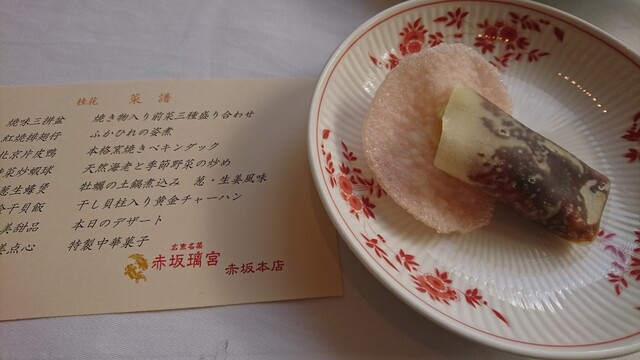 桂花 菜譜
燒味三拼盆 焼き物入り前菜三種盛り合わせ
紅燒排翅仔 ふかひれの姿煮
北京片皮鴨 本格窯焼きペキンダック
菜炒蝦球 天然海老と季節野菜の炒め
葱生蠔煲 牡蠣の土鍋煮込み 葱・生姜風味
干貝飯 干し貝柱入り黄金チャーハン
美甜品 本日のデザート
美点心 特製中華菓子
広東名菜
赤坂璃宮 赤坂本店